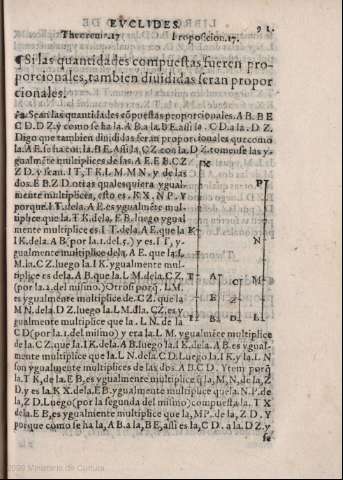 EVCLIDES.
91.
Theorema.17 Proposicion.17.
¶Si las quantidades compuestas fueren pro-
porcionales, tambien diuididas seran propor
cionales.
Sean las quantidades cōpuestas proporcionales. A B. B E
C D. D Z. y como se ha la. A B. a la. B E. assi la. C D. a la. D Z.
Digo que tambien diuididas seran proporcionales que como
la. A E. se ha cō. la. B E. Assi la, C Z con la. D Z. tomense las y-
gualmēte multiplices de las. A E. E B. C Z
Z D. y sean. I T, T K. L M. M N. y de las
dos. E B Z D. otras qualesquiera ygual-
mente multiplices, esto es. K X. N P. Y
porque. I T. dela. A E. es ygualmēte mul-
tiplice que la. T K. dela. E B. luego ygual
mente multiplice es. I T. dela. A E. que la
I K. dela. A B (por la. 1. del. 5.) y es. I T, y-
gualmente multiplice dela. A E. que la.
L M. la. C Z. luego la. I K. ygualmente mul-
tiplice es dela. A B. que la. L M. dela. C Z,
(por la. 11. del mismo.) Otrosi porq̄. L M.
es ygualmēte multiplice de. C Z. que la
M N. dela. D Z. luego la. L M. dla. C Z, es y-
gualmente multiplice que la. L N. de la
C D (por la. 1. del mismo) y era la. L M. ygualmēte multiplice
de la. C Z, que la. I K. dela. A B. luego la. I K. dela. A B. es ygual-
mente multiplice que la. L N. dela. C D. Luego la. I K. y la. L N
son ygualmente multiplices de las dos. A B. C D. Ytem porq̄
la. T K, de la. E B, es ygualmente multiplice q̄ la, M N, de la, Z
D. y es la. K X. dela. E B. ygualmente multiplice que la. N P. de
la, Z D. Luego (por la segunda del mismo) compuesta la. T X
dela. E B, es ygualmente multiplice que la, M P. de la, Z D. Y
porque como se ha la, A B, a la, B E, assi es la, C D. a la. D Z. y
se
X
P
K
N
T A C M
E Z
I B D L
2009 Ministerio de Cultura